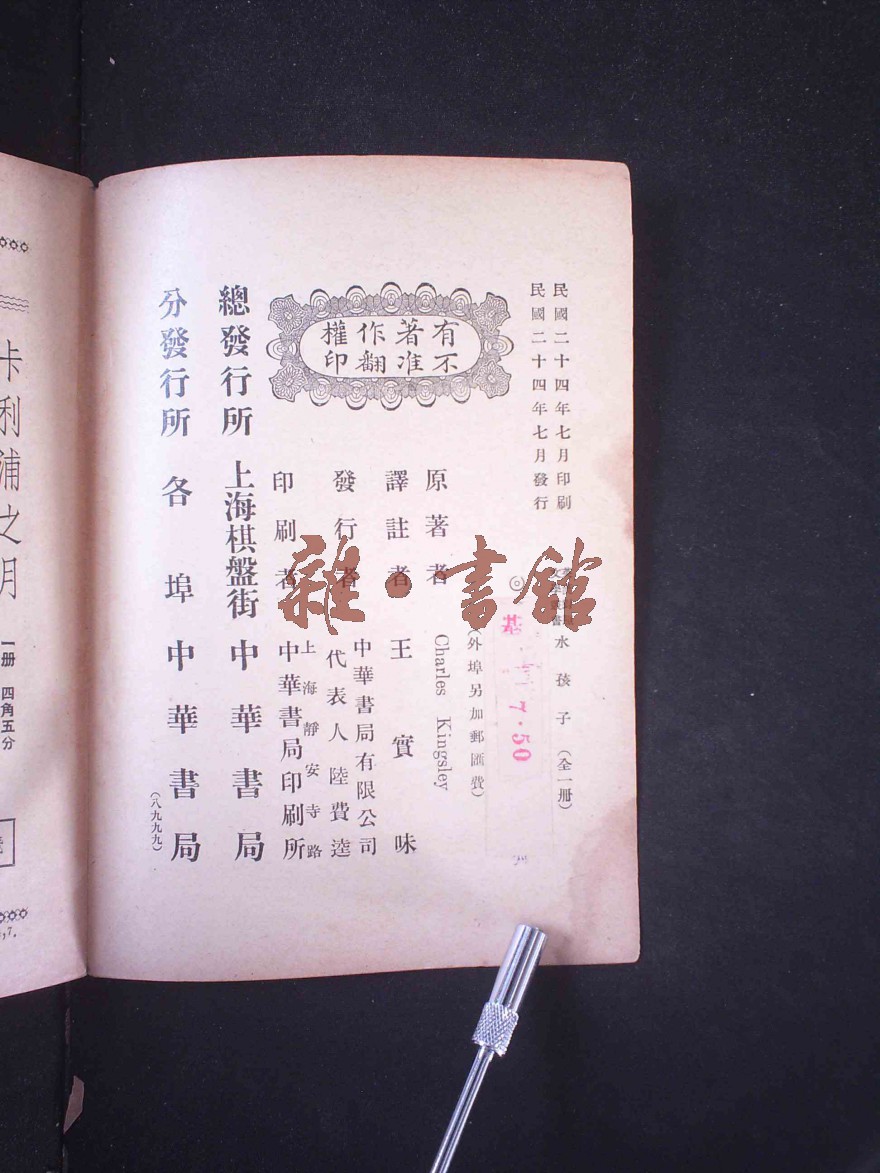 民國二十四年七月印刷
民國二十四年七月發行
水孩子（全一册）
◎
7.50
（外埠另加郵匯費）
原著者 Charles Kingsley
譯註者 王實味
發行者 中華書局有限公司
代表人 陸費逵
印刷者 上海靜安寺路
中華書局印刷所
有著作權
不准翻印
總發行所 上海棋盤街 中華書局
分發行所 各埠 中華書局
（八九九九）
雜·書館
卡利浦之月
一册 四角五分